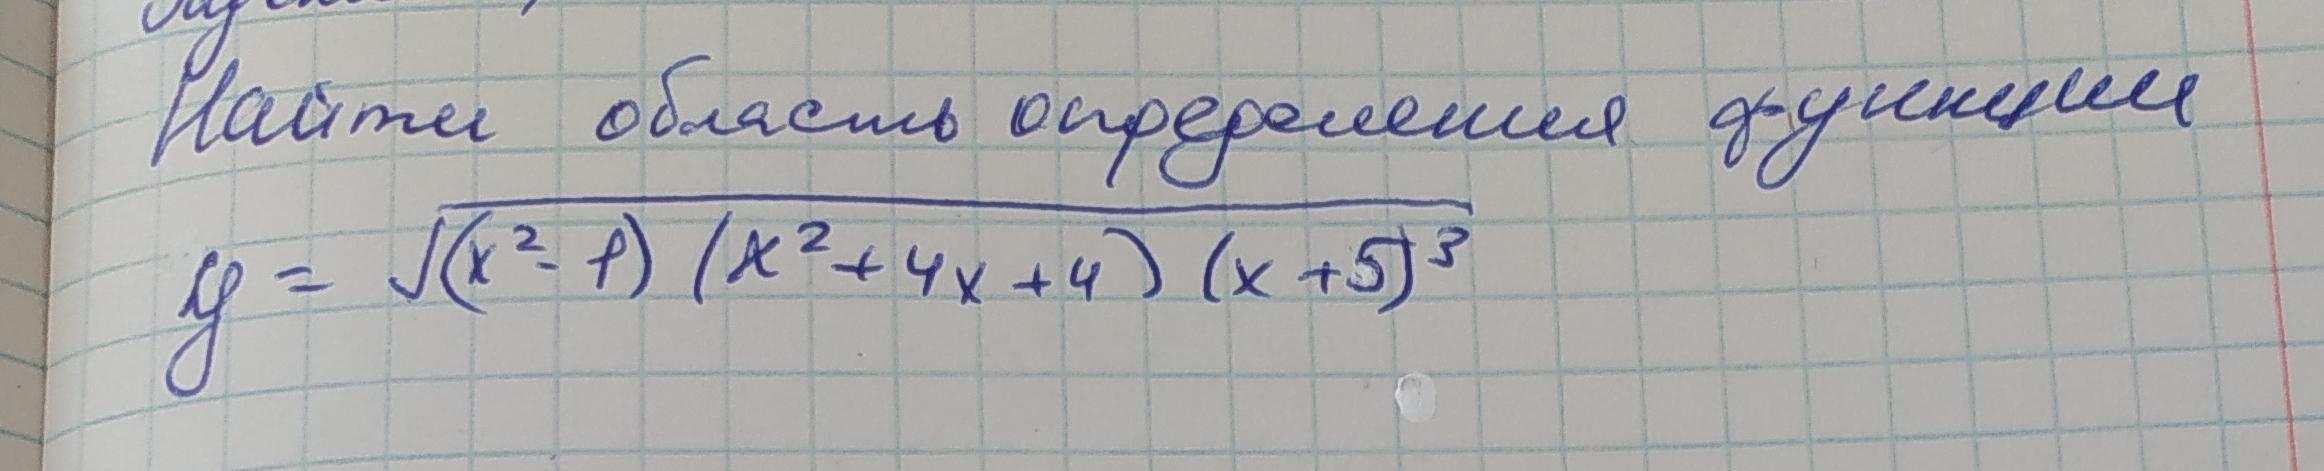 Найти область определения функции
y = √(x²-1) (x²+4x+4) (x+5)³